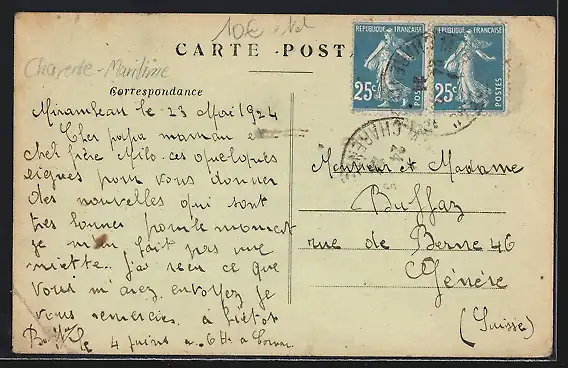 10€
CARTE POST
Charente-Maritime
Correspondance
REPUBLIQUE FRANÇAISE
25c POSTES
REPUBLIQUE FRANÇAISE
25c POSTES
Mirambeau le 23 Mai 1924
Cher papa maman e
chet frère Milo. ces quelques
lignes pour vous donner
des nouvelles qui sont
très bonnes pour le moment
je m'en fait pas une
miette.. j'ai reçu ce que
vous m'avez envoyez je
vous remercies. à bientot
le 4 juins a 6h a
Monsieur et Madame
Buffaz
rue de Berne 46
Génève
(Suisse)